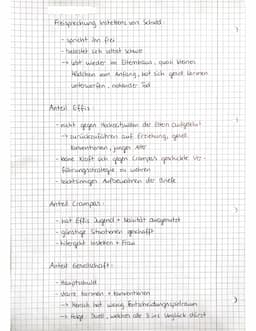 Freisprechung Instettens von Schuld:
- spricht ihn frei
- belastet sich selbst schwer
→ lebt wieder im Elternhaus, quasi kleines
Mädchen vom Anfang, hat sich gesel. Normen
unterworfen, nahender Tod
Anteil Effis:
- nicht gegen Hochzeitswillen der Eltern aufgelehnt
→ zurückzuführen auf Erziehung, gesel.
Konventionen, junges Alter
- keine Kraft sich gegen Crampas geschickte Ver-
führungsstrategie zu wehren
- leichtsinniges Aufbewahren der Briefe
Anteil Crampas:
- hat Effis Jugend + Naivität ausgenutzt
- günstige Situationen geschafft
- hintergeht Instetten + Frau
Anteil Gesellschaft:
- Hauptschuld
- starre Normen + Konventionen
→ Mensch hat wenig Entscheidungsspielraum
→ Folge: Duell, welches alle 3 ins Unglück stürzt